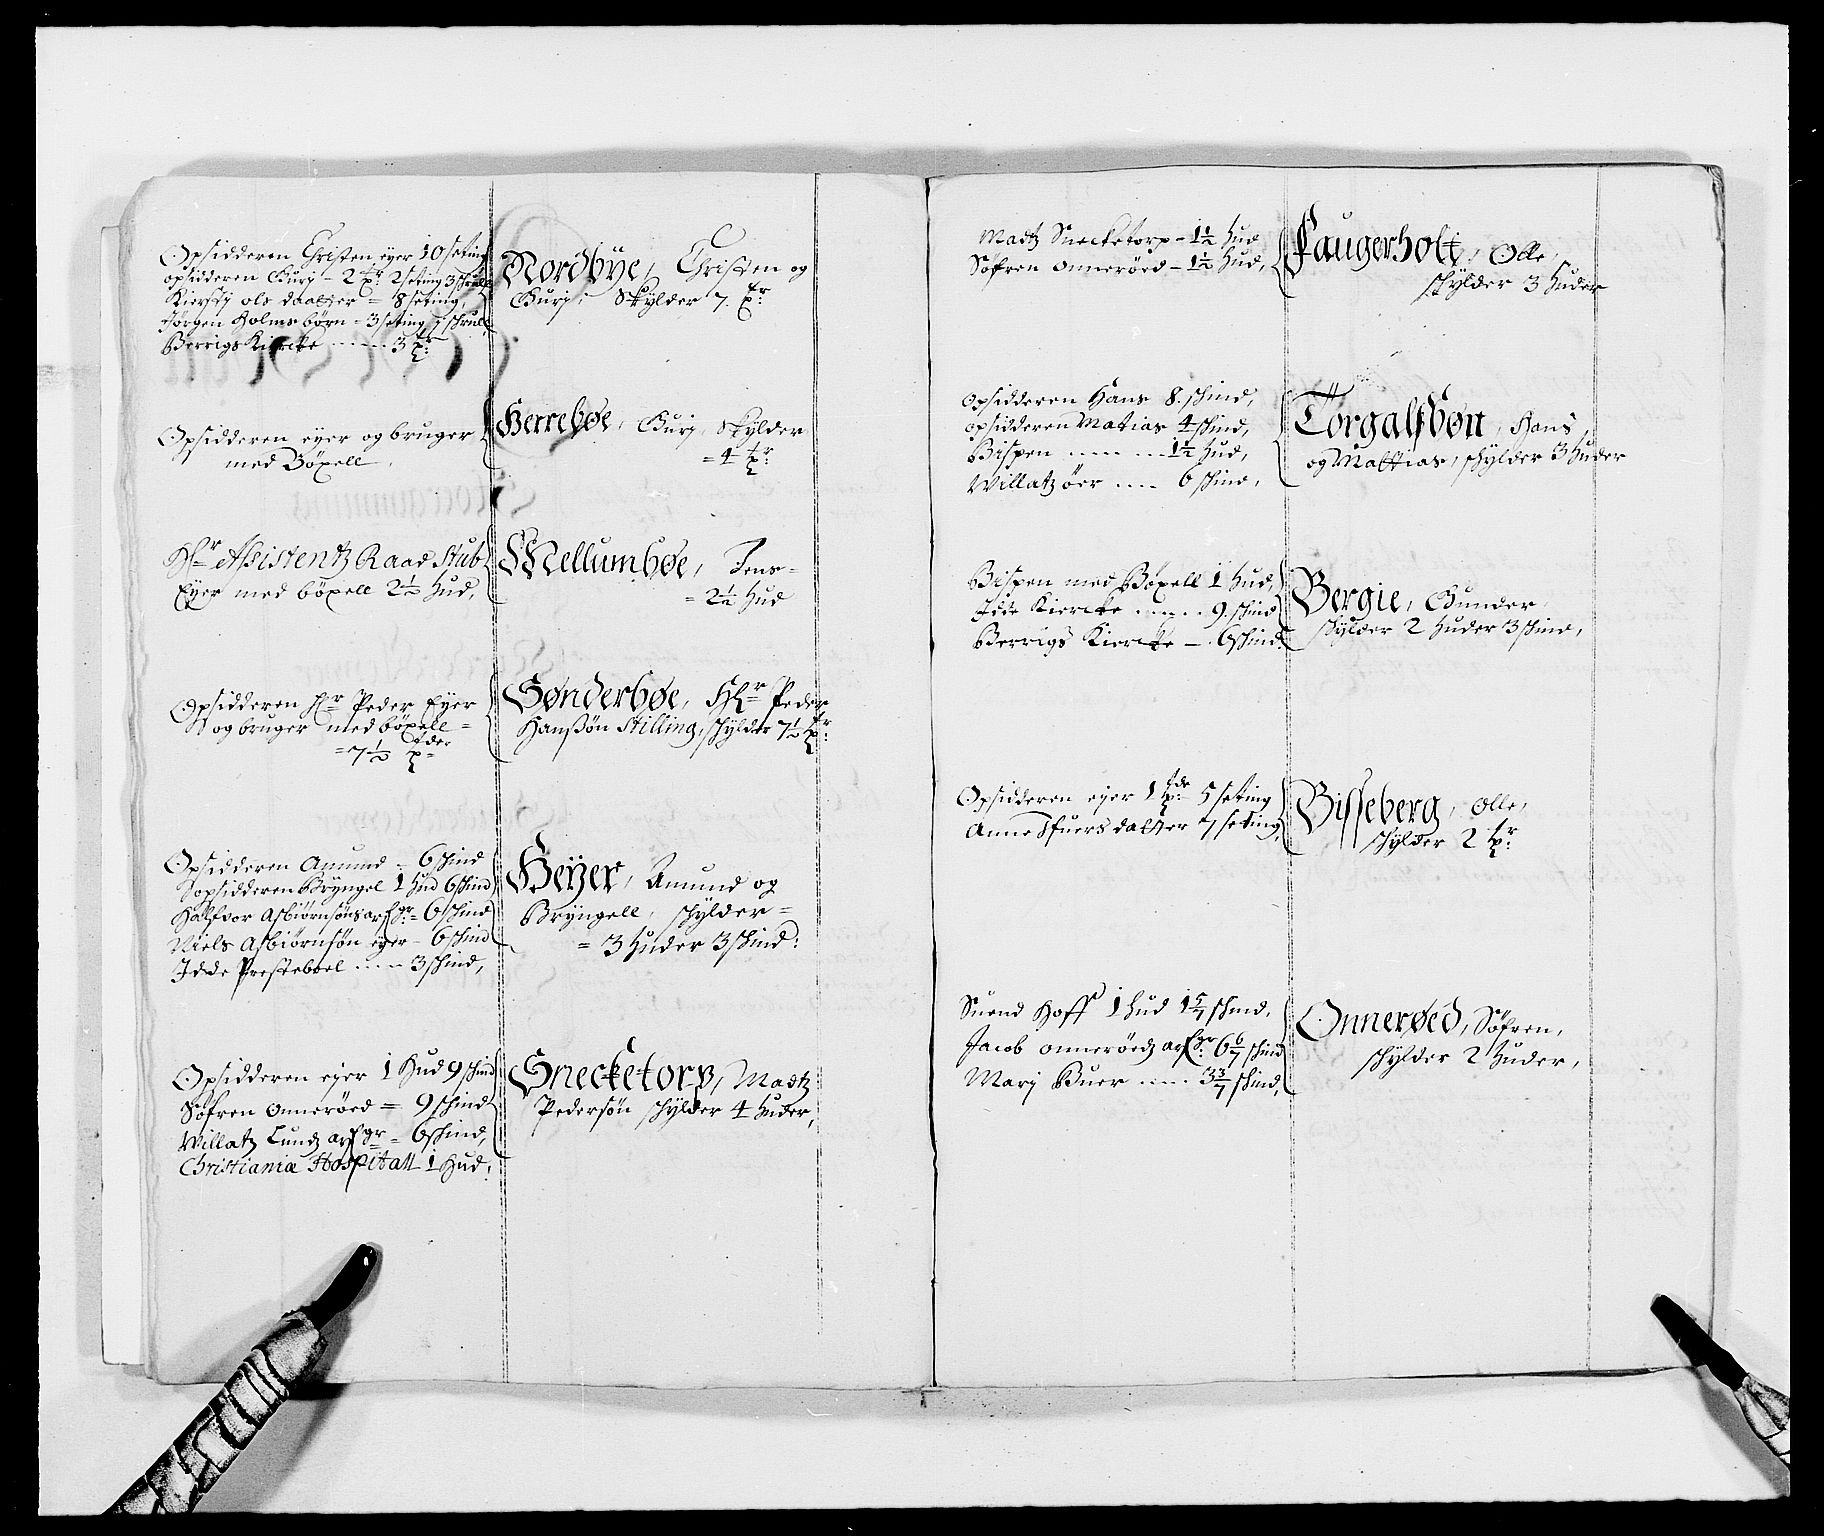 Opsidderen Christen eyer 10 seting
opsidderen Gurj - 2 tpr 2 seting 3 skrull
Kiersty ols daatter = 8 seting,
Jørgen Holms børn - 3 seting 1 schrull
Berrigs Kiercke ...... 3 tpr:
Nordbye, Christen og
Gurj: Skylder 7 tpr
Opsidderen eyer og bruger
med Böxell,
Herrebøe, Gurj, Skylder
= 4 tpr:
Hr Assistentz Raad Stub
Eyer med böxell 2½ Hud,
Mellumbøe, Jens =
= 2½ Hud
Opsidderen Hr Peder Eyer
og bruger med böxell =
= 7½ tpder
Sønderbøe, Hr Peder
Hanßøn Stilling, schylder 7½ tpr:
Opsidderen Amund - 6 schind
opsidderen Bryngel 1 Hud 6 schind
Halfvor Asbiørnsøns arfgr = 6 schind
Niels Asbiørnsøn eyer - 6 schind
Idde Presteboel ..... 3 schind,
Heyer, Amund og
Bryngell, schylder =
= 3 Huder 3 schind:
Opsidderen eyer 1 Hud 9 schind
Søfren Onnerøed = 9 schind
Willatz Lundz arfgr - 6 schind,
Christianiæ Hospitall 1 Hud:
Snecketorp, Madtz
Pedersøn schylder 4 Huder,
Madtz Snecketorp - 1½ Hud
Søfren Onnerøed - 1½ Hud,
Faugerholt, Olle,
schylder 3 Huder
Opsidderen Hans 8. schind,
opsidderen Matias 4 schind,
Bispen ........ 1½ Hud,
Willatz öer .... 6 schind,
Torgalsbøn, Hans,
og Mattias, schylder 3 Huder
Bispen med Böxell 1 Hud,
Idde Kiercke ...... 9. schind
Berrigs Kiercke - . 6 schind:
Bergie, Gunder,
schylder 2 Huder 3 schind,
Opsidderen eyer 1 tpde 5 seting
Anne Ifuers datter 7 seting,
Bisseberg, Olle,
schylder 2 tpr:
Suend Hoff 1 hud 1 5/7 schind,
Jacob Onnerøedz arfgr: 6 6/7 schind
Marj Buer ..... 3 3/7 schind,
Onnerøed, Søfren,
schylder 2 Huder,